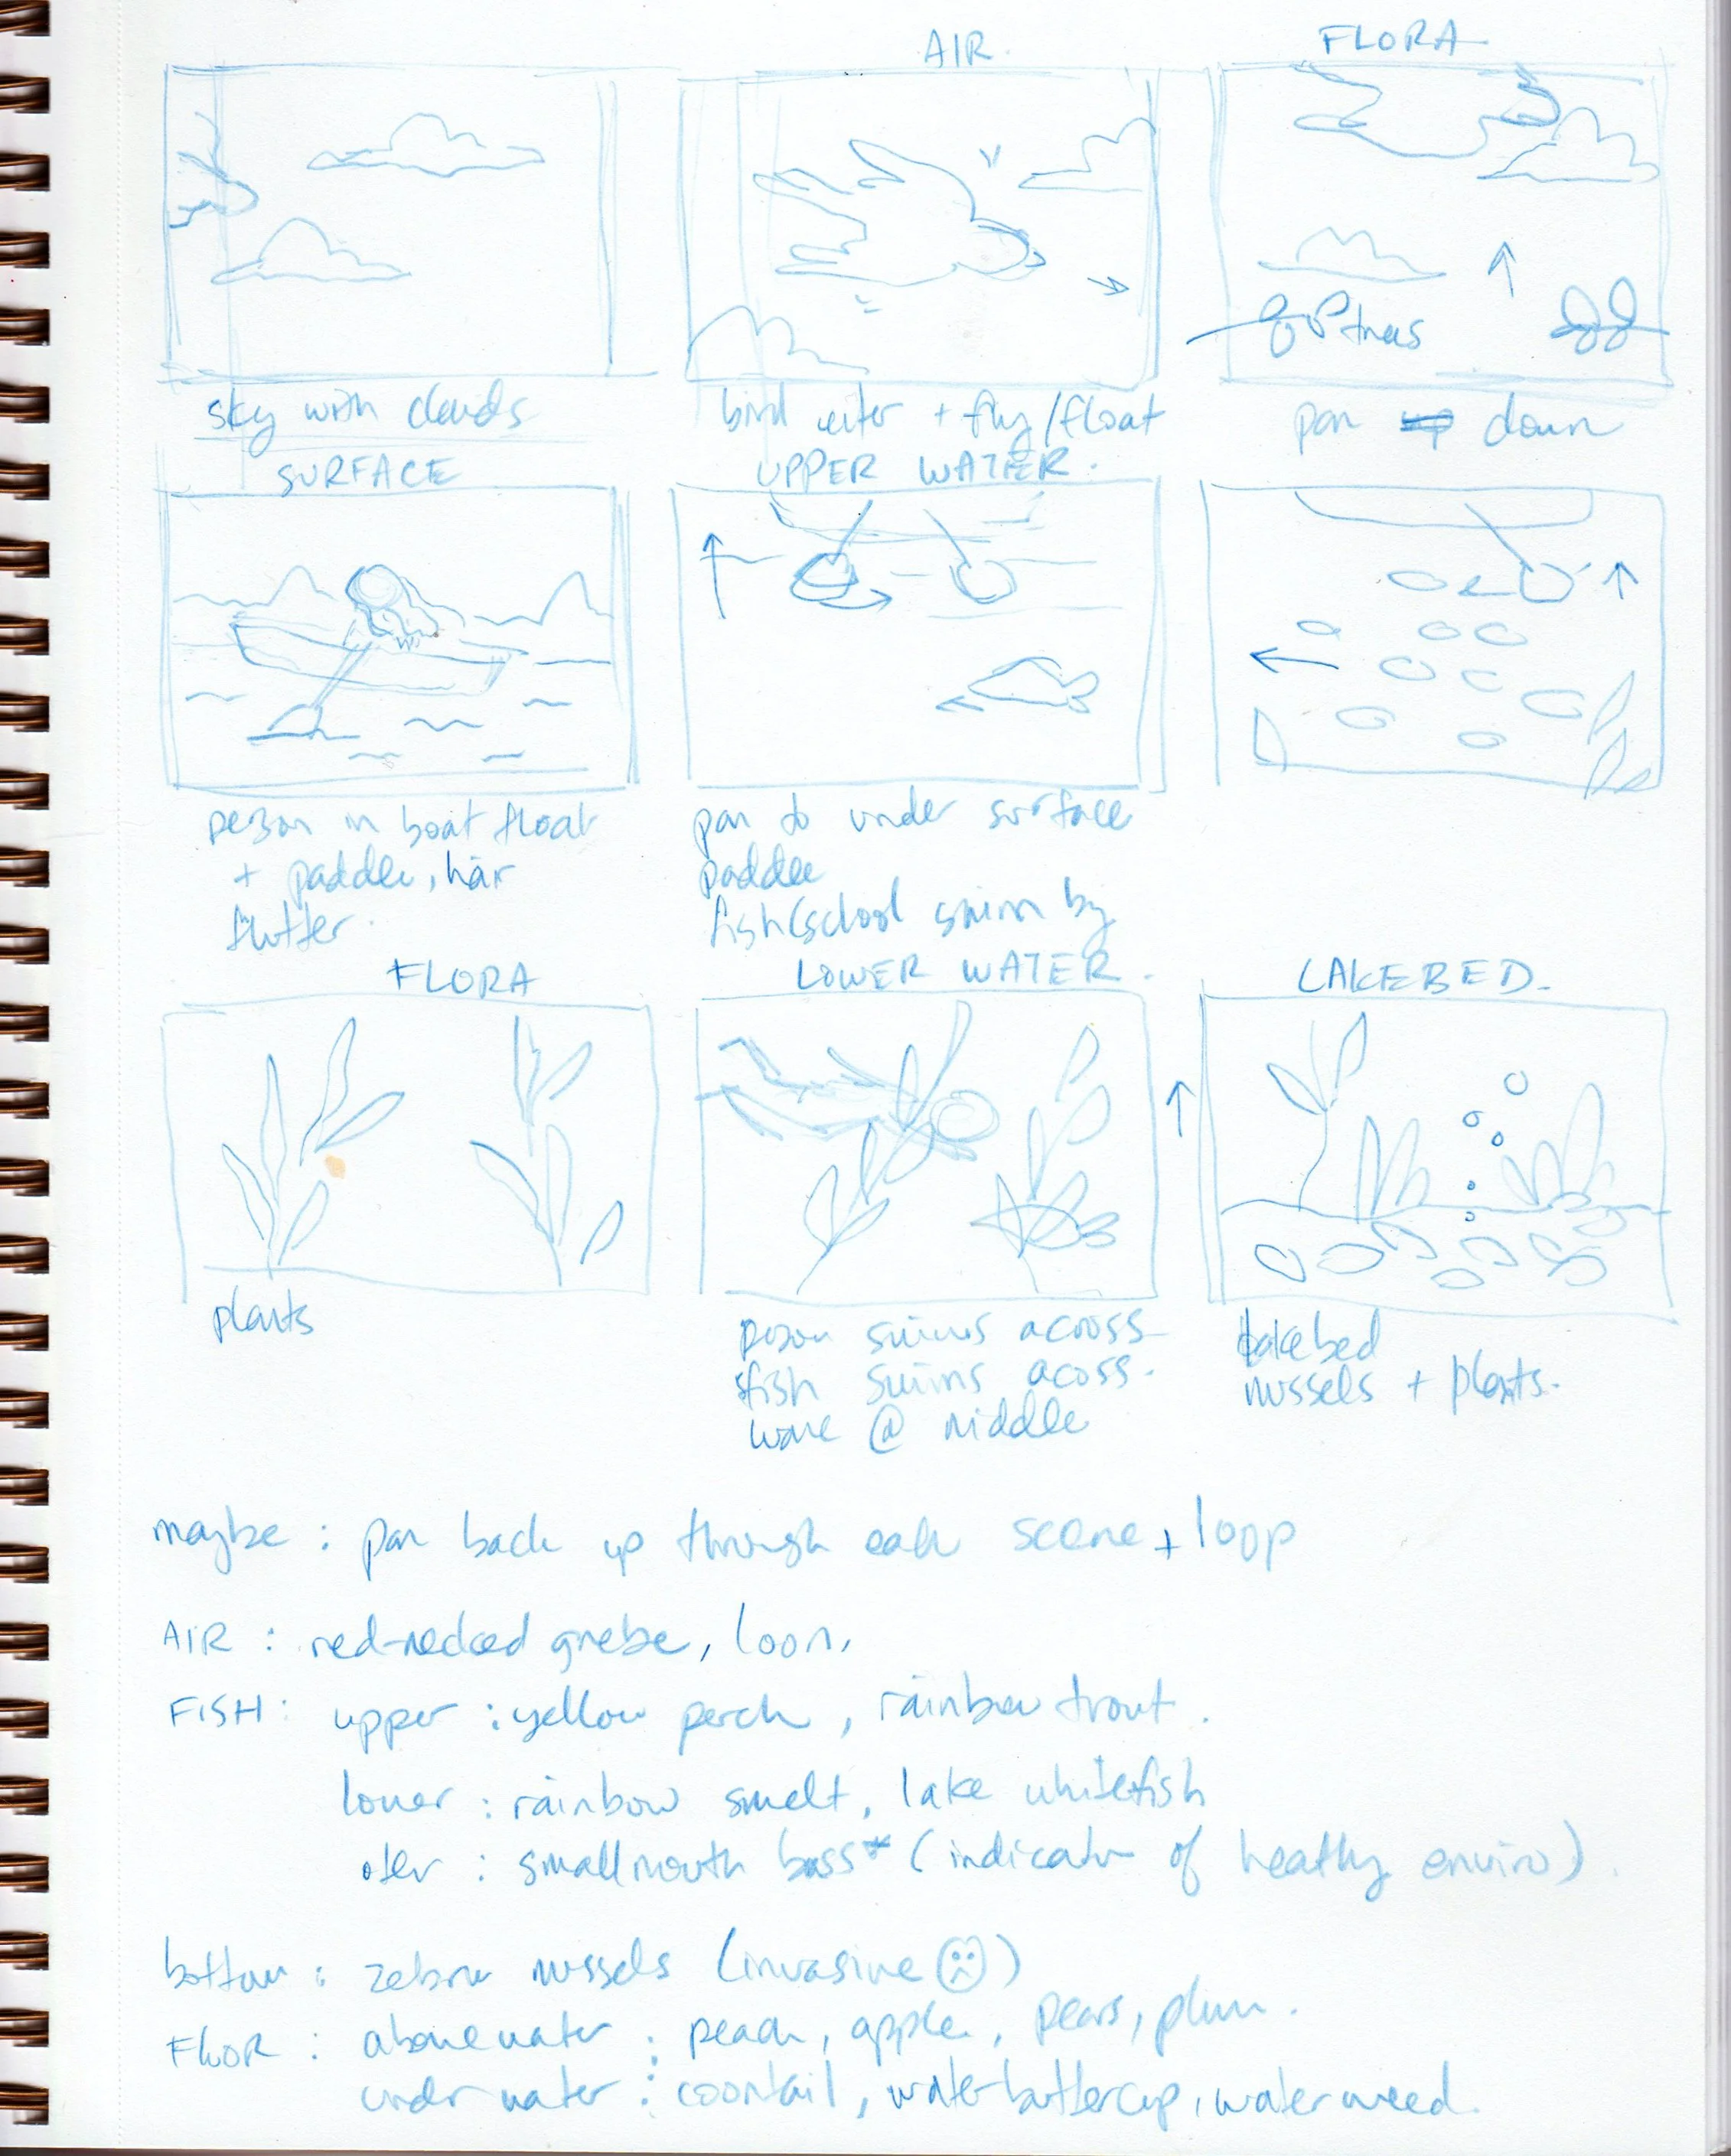 AIR.
FLORA
trees
sky with clouds
bird enter + fly/float
pan down
SURFACE
UPPER WATER.
person in boat float
+ paddle, hair
flutter.
pan to under surface
paddle
fish/school swim by
FLORA
LOWER WATER.
LAKEBED.
plants
person swims across
fish swims acoss.
@ middle
lakebed
mussels + plants.
maybe : pan back up through each scene + loop
AIR : red-necked grebe, loon,
FISH : upper : yellow perch, rainbow trout.
lower : rainbow smelt, lake whitefish
other : smallmouth bass* (indicator of healthy enviro).
bottom : zebra mussels (invasive ☹)
FLOOR : above water : peach, apple, pears, plum.
under water : coontail, water buttercup, water weed.